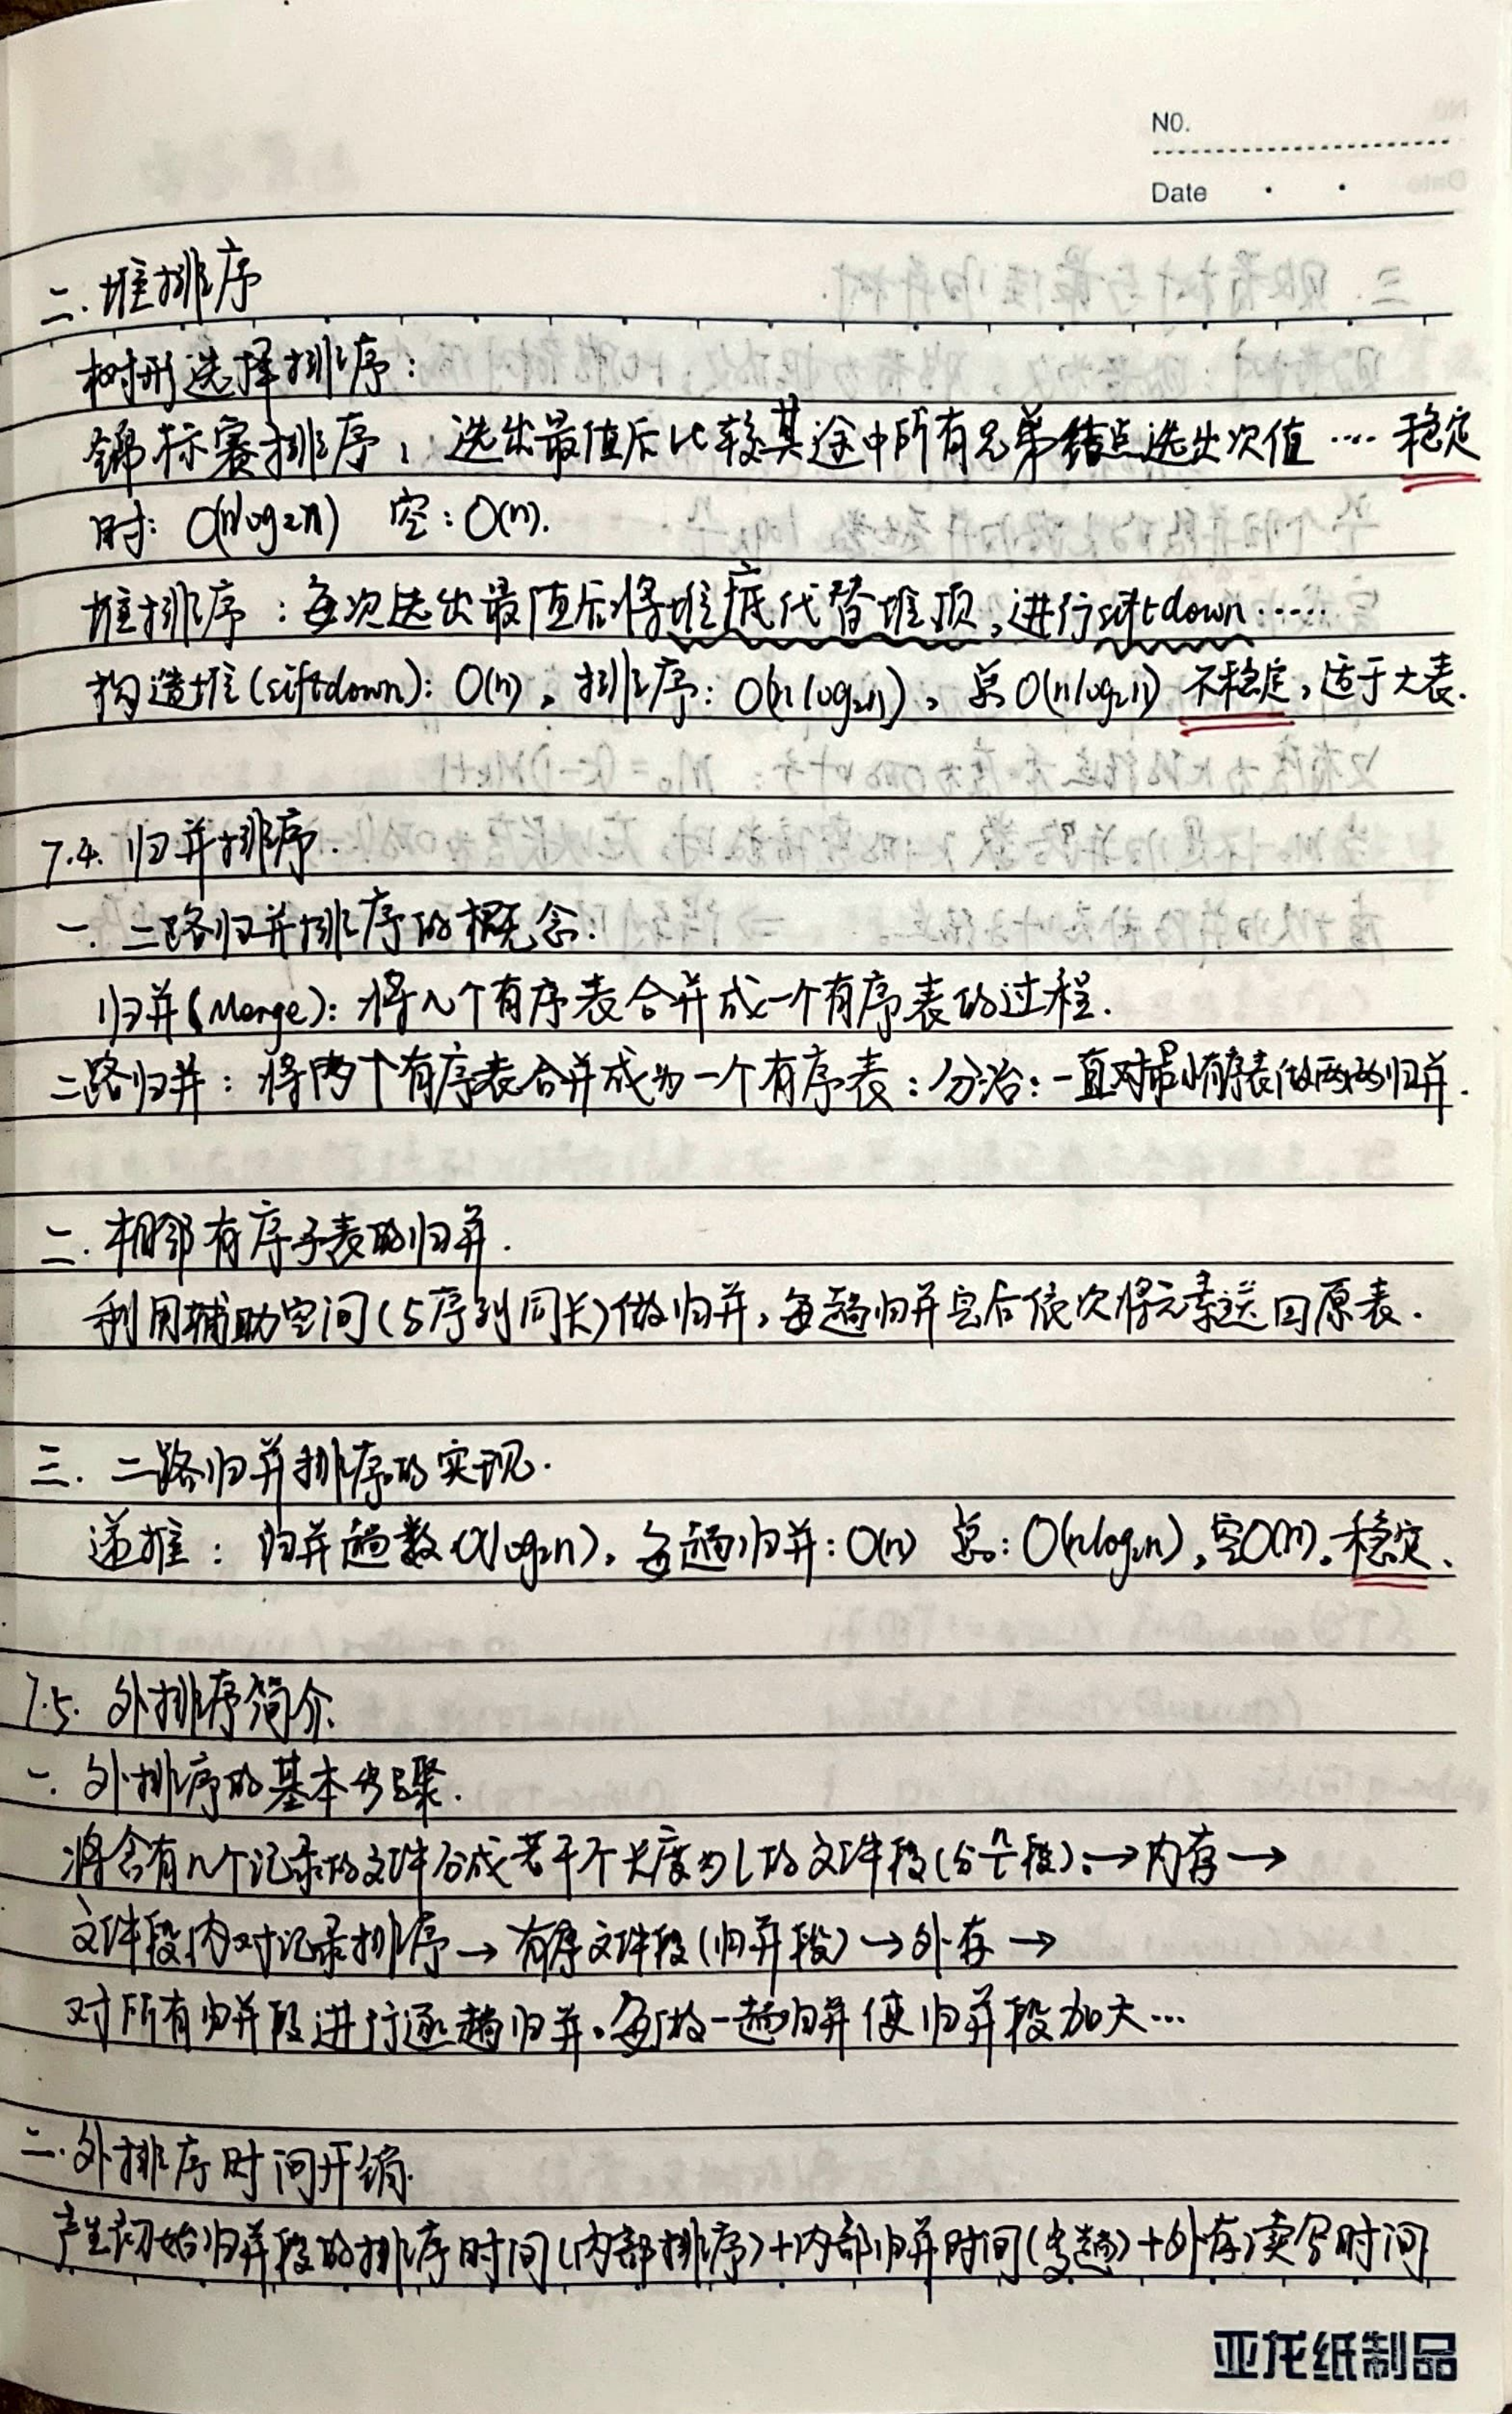 NO.
Date
二. 堆排序
树形选择排序:
锦标赛排序, 选出最值后比较其途中所有兄弟结点选出次值 …. 稳定
时: O(nlog₂n) 空: O(n).
堆排序: 每次选出最值后将堆底代替堆顶, 进行siftdown……
构造堆(siftdown): O(n), 排序: O(nlog₂n), 总O(nlog₂n) 不稳定, 适于大表.
7.4. 归并排序.
一. 二路归并排序的概念.
归并(Merge): 将n个有序表合并成一个有序表的过程.
二路归并: 将两个有序表合并成为一个有序表: 分治: 一直对最小有序表做两两归并.
二. 相邻有序子表的归并.
利用辅助空间(与序列同长)做归并, 每趟归并完后依次将元素送回原表.
三. 二路归并排序的实现.
递推: 归并趟数O(log₂n), 每趟归并: O(n) 总: O(nlog₂n), 空O(n). 稳定.
7.5. 外排序简介.
一. 外排序的基本步骤.
将含有n个记录的文件分成若干个长度为l的文件段(分n/l段): → 内存 →
文件段内对记录排序 → 有序文件段(归并段) → 外存 →
对所有归并段进行逐趟归并. 每做一趟归并使归并段加大…
二. 外排序时间开销.
产生初始归并段的排序时间(内部排序)+内部归并时间(多趟)+外存读写时间
亚龙纸制品